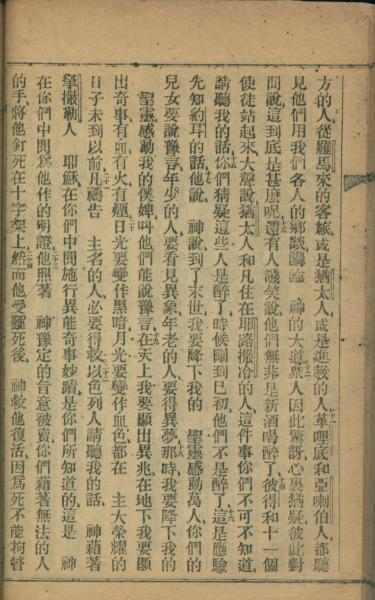 方的人、從羅馬來的客旅、或是猶太人、或是進教的人、革哩底和亞喇伯人、都聽
見他們用我們各人的鄉談講論　神的大道、衆人因此驚訝、心裏猶疑、彼此對
問說、這到底是甚麽呢、還有人譏笑說、他們無非是新酒喝醉了、彼得和十一個
使徒站起來、大聲說、猶太人和凡住在耶路撒冷的人、這件事你們不可不知道、
請聽我的話、你們猜疑這些人是醉了、時候剛到巳初、他們不是醉了、這是應驗
先知約耳的話、他說　神說、到了末世、我要降下我的　聖靈感動萬人、你們的
兒女要說豫言、年少的人要看見異象、年老的人要得異夢、那時我要降下我的
聖靈感動我的僕婢、叫他們能說豫言、在天上我要顯出異兆、在地下我要顯
出奇事、有血、有火、有烟、日光要變作黑暗、月光要變作血色、都在　主大榮耀的
日子未到以前、凡禱告　主名的人、必要得救、以色列人請聽我的話、　神藉著
拏撒勒人　耶穌、在你們中間施行異能奇事妙蹟、是你們所知道的、這是　神
在你們中間爲他作的明證、他照著　神豫定的旨意被賣、你們藉著無法的人
的手、將他釘死在十字架上、然而他受難死後、　神救他復活、因爲死不能拘管